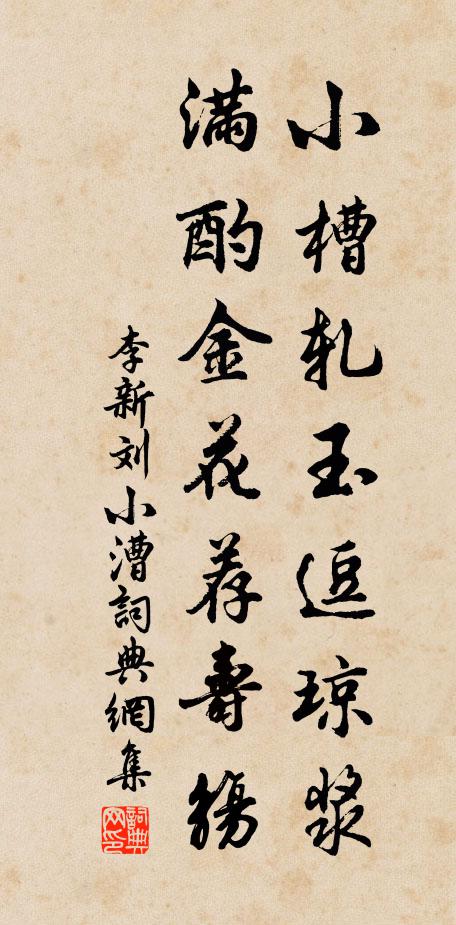 小槽轧玉逗琼浆
满酌金花荐寿觞
李新刘小漕詞典網集
詞典网印